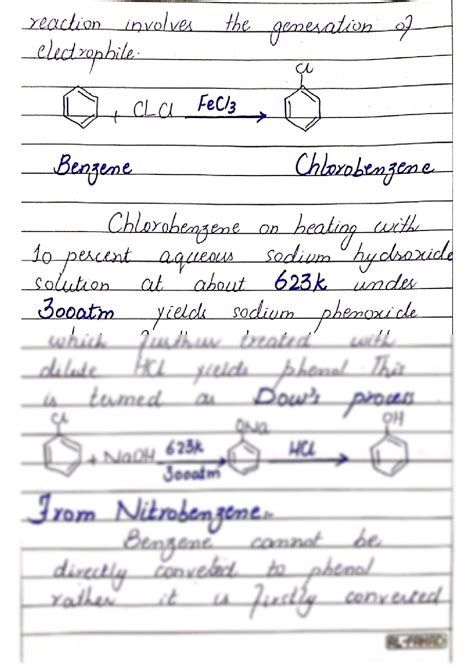 reaction involves the generation of
electrophile.
Cl
+ Cl-Cl FeCl3
Benzene Chlorobenzene
Chlorobenzene on heating with
10 percent aqueous sodium hydroxide
solution at about 623k under
300atm yields sodium phenoxide
which further treated with
dilute HCl yields phenol This
is termed as Dow's process
Cl ONa OH
+ NaOH 623k 300atm HCl
From Nitrobenzene:-
Benzene cannot be
directly converted to phenol
rather it is firstly converted
AL-FAHAD